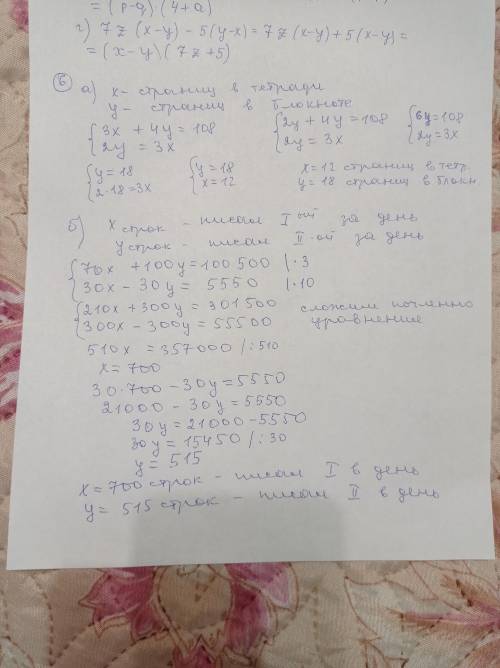 = (p-q)(4+a)
г) 7z(x-y) - 5(y-x) = 7z(x-y) + 5(x-y) =
= (x-y)(7z+5)
⑥ а) x - страниц в тетради
y - страниц в блокноте
{3x + 4y = 108 {2y + 4y = 108 {6y = 108
{2y = 3x {2y = 3x {2y = 3x
{y = 18 {y = 18 x = 12 страниц в тетр.
{2·18 = 3x {x = 12 y = 18 страниц в блокн.
б) x строк - писал I ый за день
y строк - писал II-ой за день
{70x + 100y = 100500 |·3
{30x - 30y = 5550 |·10
{210x + 300y = 301500 сложим почленно
{300x - 300y = 55500 уравнение
510x = 357000 /:510
x = 700
30·700 - 30y = 5550
21000 - 30y = 5550
30y = 21000 - 5550
30y = 15450 /:30
y = 515
x = 700 строк - писал I в день
y = 515 строк - писал II в день